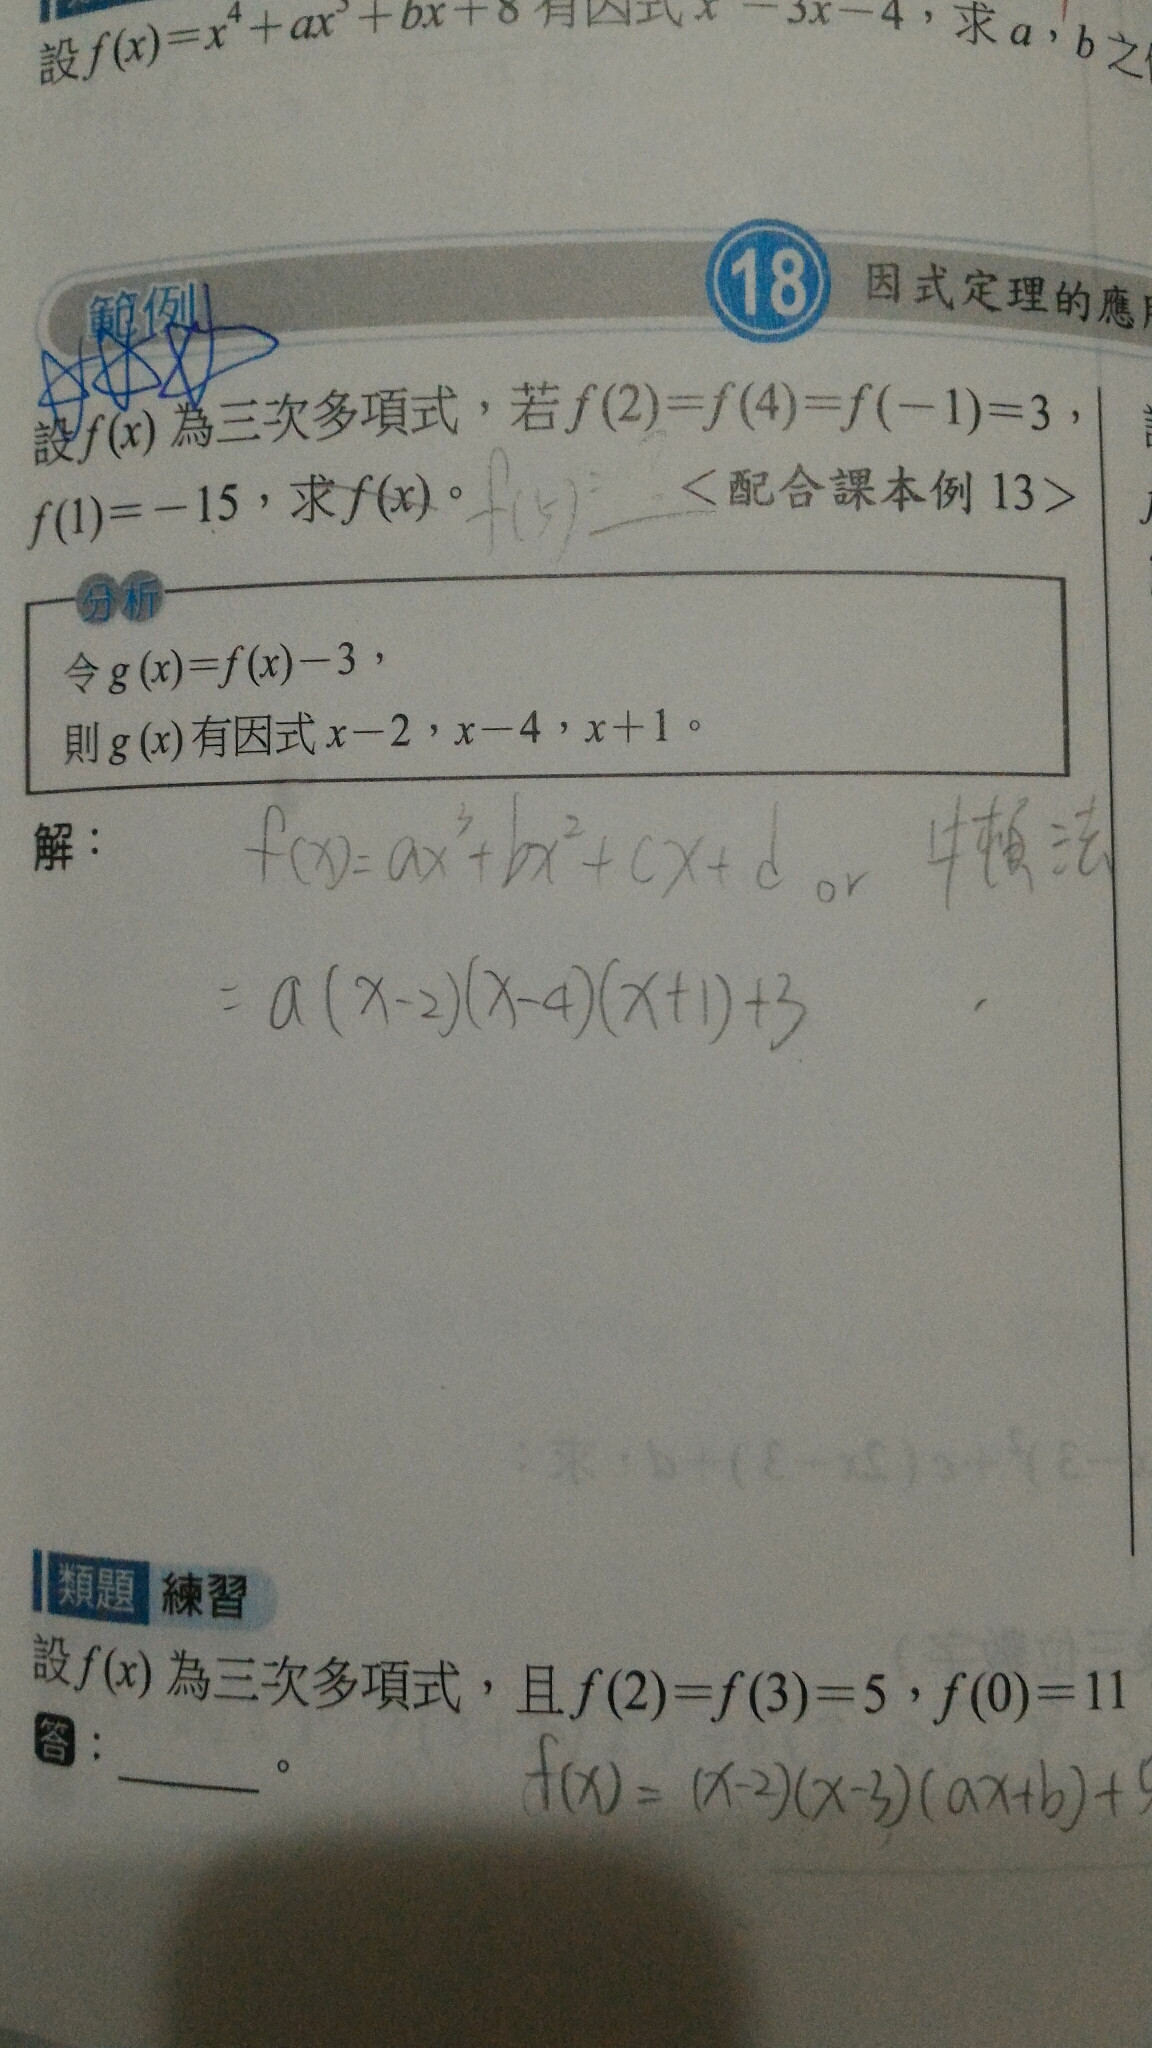 設 f(x)=x⁴+ax³+bx+8 有因式 x²-3x-4，求 a，b 之
範例 18 因式定理的應
設 f(x) 為三次多項式，若 f(2)=f(4)=f(-1)=3，
f(1)=-15，求 f(x)。 f(5)= <配合課本例 13>
分析
令 g(x)=f(x)-3，
則 g(x) 有因式 x-2，x-4，x+1。
解：
f(x)=ax³+bx²+cx+d or 牛頓法
=a(x-2)(x-4)(x+1)+3
類題 練習
設 f(x) 為三次多項式，且 f(2)=f(3)=5，f(0)=11
答：______。
f(x)=(x-2)(x-3)(ax+b)+5